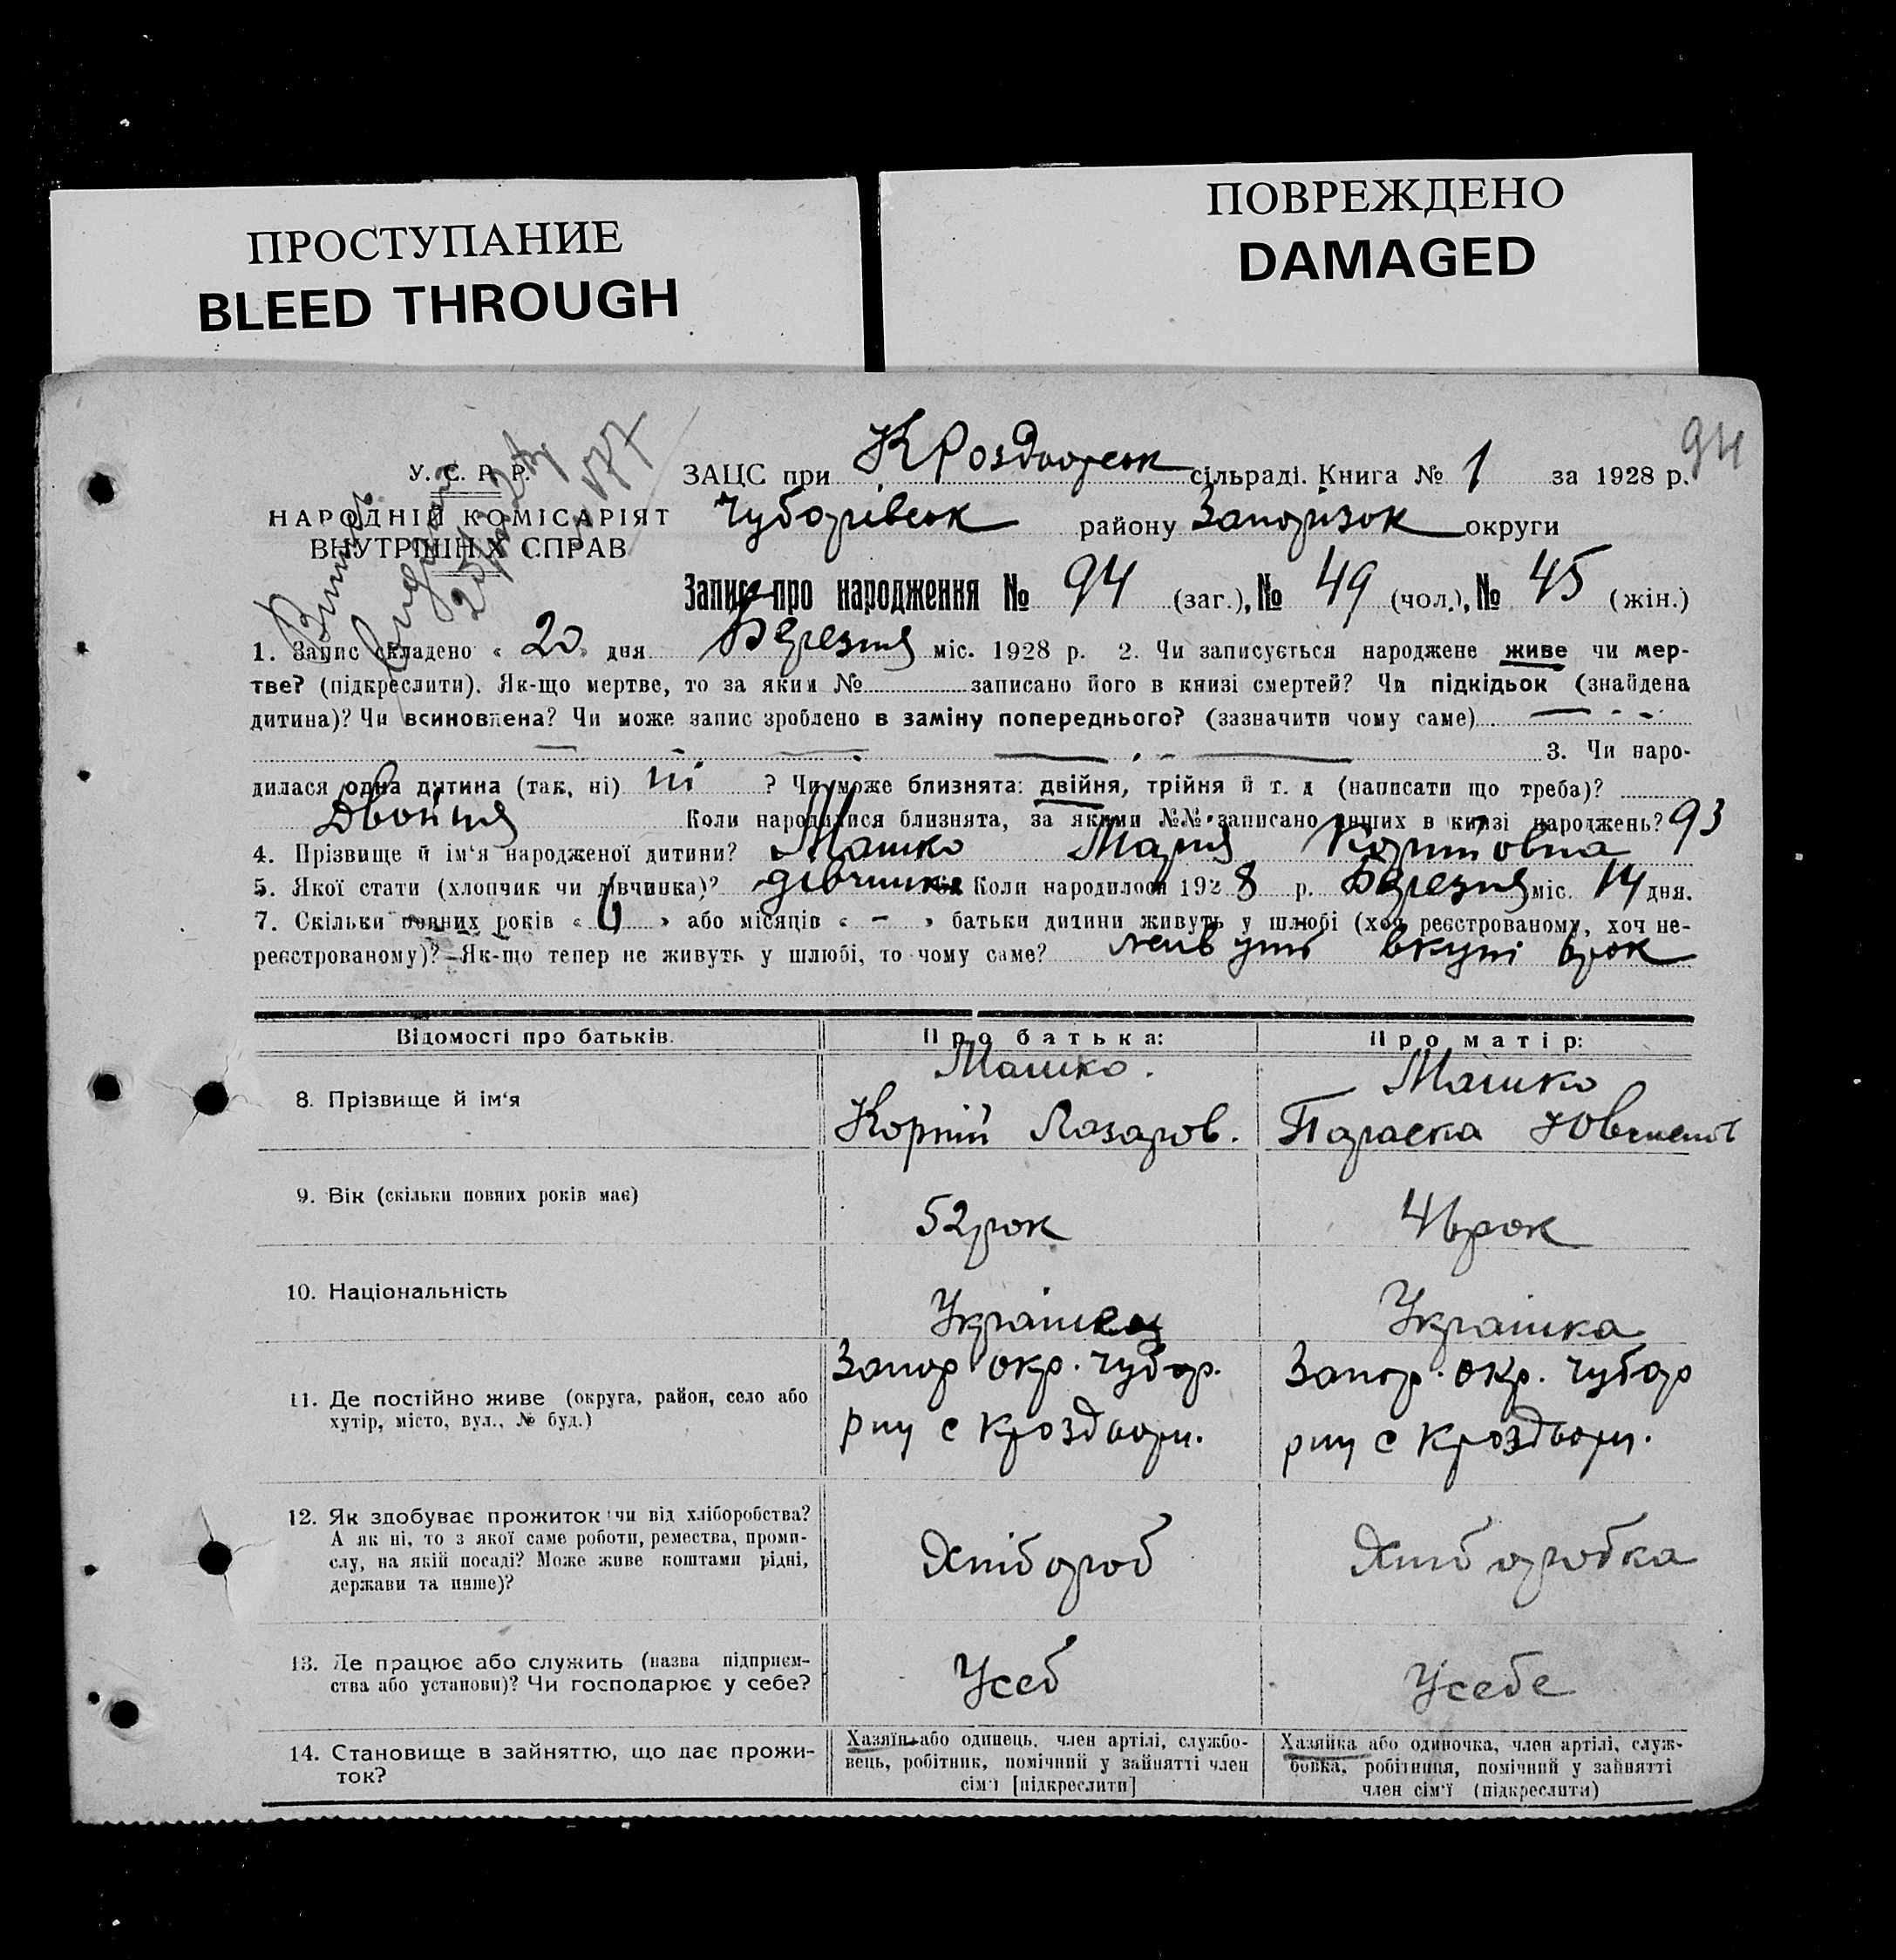 ПРОСТУПАНИЕ
BLEED THROUGH
ПОВРЕЖДЕНО
DAMAGED
94
У. С. Р. Р.
НАРОДНІЙ КОМІСАРІЯТ
ВНУТРІШНІХ СПРАВ
ЗАЦС при К Роздорськ сільраді. Книга № 1 за 1928 р.
Чубарівськ району Запорізок округи
Запис про народження № 94 (заг.), № 49 (чол.), № 45 (жін.)
1. Запис складено « 20 » дня Березня міс. 1928 р. 2. Чи записується народжене живе чи мер-
тве? (підкреслити). Як-що мертве, то за яким № записано його в книзі смертей? Чи підкідьок (знайдена
дитина)? Чи всиновлена? Чи може запис зроблено в заміну попереднього? (зазначити чому саме) —
3. Чи наро-
дилася одна дитина (так, ні) ні ? Чи може близнята: двійня, трійня й т. д (написати що треба)?
Двойня Коли народилися близнята, за якими №№ записано инших в книзі народжень? 93
4. Прізвище й ім'я народженої дитини? Машко Мария Корніовна
5. Якої стати (хлопчик чи дівчинка)? дівчинка Коли народилося 1928 р. Березня міс. 14 дня.
7. Скільки повних років « 6 » або місяців « - » батьки дитини живуть у шлюбі (хоч реєстрованому, хоч не-
реєстрованому)? Як-що тепер не живуть у шлюбі, то чому саме? живуть вкупі 6рок
Відомості про батьків. Про батька: Про матір:
8. Прізвище й ім'я
Машко.
Корній Лазаров.
Машко
Параска
9. Вік (скільки повних років має)
52рок
46рок
10. Національність
Українец
Українка
11. Де постійно живе (округа, район, село або
хутір, місто, вул., № буд.)
Запор окр. Чубар.
рну с Кроздори.
Запор. окр. Чубар
рну с Кроздори.
12. Як здобуває прожиток чи від хліборобства?
А як ні, то з якої саме роботи, ремества, проми-
слу, на якій посаді? Може живе коштами рідні,
держави та инше)?
Хлібороб
Хліборобка
13. Де працює або служить (назва підприєм-
ства або установи)? Чи господарює у себе?
Усеб
Усебе
14. Становище в зайняттю, що дає прожи-
ток?
Хазяїн або одинець, член артілі, службо-
вець, робітник, помічний у зайнятті член
сім'ї [підкреслити]
Хазяйка або одиночка, член артілі, служ-
бовка, робітниця, помічний у зайнятті
член сім'ї (підкреслити)